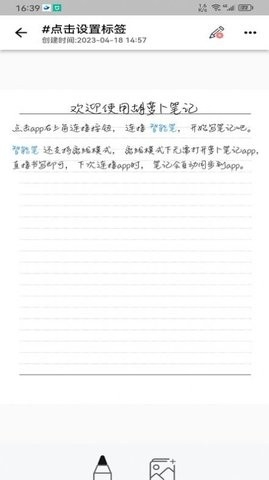 16:39
#点击设置标签
创建时间:2023-04-18 14:57
欢迎使用胡萝卜笔记
点击app右上角连接按钮，连接 智能笔，开始写笔记吧。
智能笔 还支持离线模式，离线模式下无需打开萝卜笔记app，
直接书写即可，下次连接app时，笔记会自动同步到app。